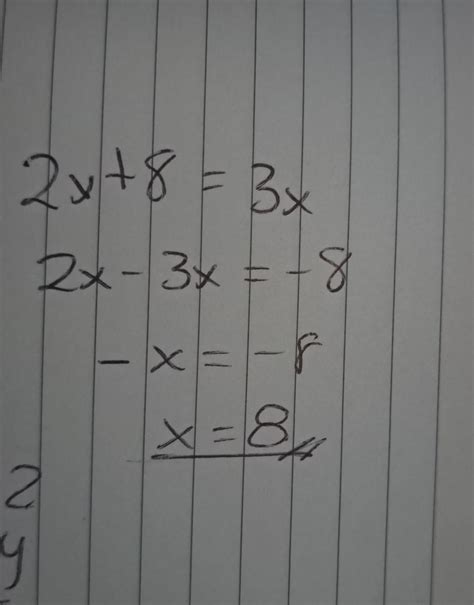 2x+8 = 3x
2x - 3x = -8
- x = - 8
x = 8
2
y